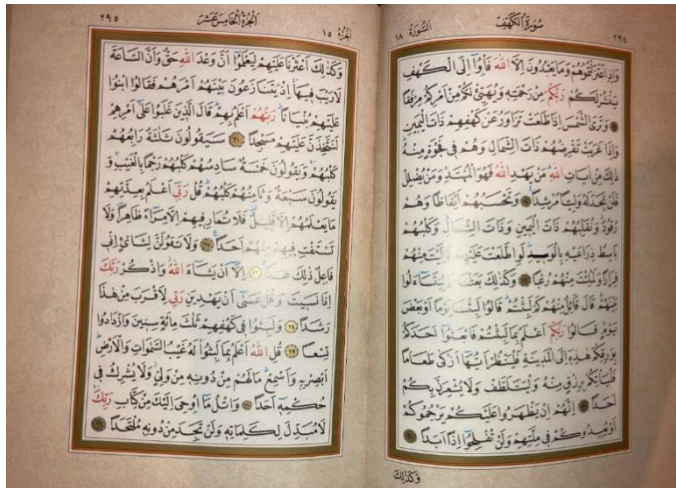 سُورَةُ الْكَهْفِ
السُّورَةُ ١٨
٢٩٤
وَإِذِ اعْتَزَلْتُمُوهُمْ وَمَا يَعْبُدُونَ إِلَّا اللهَ فَأْوُوا إِلَى الْكَهْفِ
يَنْشُرْ لَكُمْ رَبُّكُمْ مِنْ رَحْمَتِهِ وَيُهَيِّئْ لَكُمْ مِنْ أَمْرِكُمْ مِرْفَقًا
وَتَرَى الشَّمْسَ إِذَا طَلَعَتْ تَزَاوَرُ عَنْ كَهْفِهِمْ ذَاتَ الْيَمِينِ
وَإِذَا غَرَبَتْ تَقْرِضُهُمْ ذَاتَ الشِّمَالِ وَهُمْ فِي فَجْوَةٍ مِنْهُ
ذَلِكَ مِنْ آيَاتِ اللهِ مَنْ يَهْدِ اللهُ فَهُوَ الْمُهْتَدِ وَمَنْ يُضْلِلْ
فَلَنْ تَجِدَ لَهُ وَلِيًّا مُرْشِدًا وَتَحْسَبُهُمْ أَيْقَاظًا وَهُمْ
رُقُودٌ وَنُقَلِّبُهُمْ ذَاتَ الْيَمِينِ وَذَاتَ الشِّمَالِ وَكَلْبُهُمْ
بَاسِطٌ ذِرَاعَيْهِ بِالْوَصِيدِ لَوِ اطَّلَعْتَ عَلَيْهِمْ لَوَلَّيْتَ مِنْهُمْ
فِرَارًا وَلَمُلِئْتَ مِنْهُمْ رُعْبًا وَكَذَلِكَ بَعَثْنَاهُمْ لِيَتَسَاءَلُوا
بَيْنَهُمْ قَالَ قَائِلٌ مِنْهُمْ كَمْ لَبِثْتُمْ قَالُوا لَبِثْنَا يَوْمًا أَوْ بَعْضَ
يَوْمٍ قَالُوا رَبُّكُمْ أَعْلَمُ بِمَا لَبِثْتُمْ فَابْعَثُوا أَحَدَكُمْ
بِوَرِقِكُمْ هَذِهِ إِلَى الْمَدِينَةِ فَلْيَنْظُرْ أَيُّهَا أَزْكَى طَعَامًا
فَلْيَأْتِكُمْ بِرِزْقٍ مِنْهُ وَلْيَتَلَطَّفْ وَلَا يُشْعِرَنَّ بِكُمْ
أَحَدًا إِنَّهُمْ إِنْ يَظْهَرُوا عَلَيْكُمْ يَرْجُمُوكُمْ
أَوْ يُعِيدُوكُمْ فِي مِلَّتِهِمْ وَلَنْ تُفْلِحُوا إِذًا أَبَدًا
وَكَذَلِكَ
اَلْجُزْءُ الْخَامِسَ عَشَرَ
الجزء ١٥
٢٩٥
وَكَذَلِكَ أَعْثَرْنَا عَلَيْهِمْ لِيَعْلَمُوا أَنَّ وَعْدَ اللهِ حَقٌّ وَأَنَّ السَّاعَةَ
لَا رَيْبَ فِيهَا إِذْ يَتَنَازَعُونَ بَيْنَهُمْ أَمْرَهُمْ فَقَالُوا ابْنُوا
عَلَيْهِمْ بُنْيَانًا رَبُّهُمْ أَعْلَمُ بِهِمْ قَالَ الَّذِينَ غَلَبُوا عَلَى أَمْرِهِمْ
لَنَتَّخِذَنَّ عَلَيْهِمْ مَسْجِدًا ٢١ سَيَقُولُونَ ثَلَثَةٌ رَابِعُهُمْ
كَلْبُهُمْ وَيَقُولُونَ خَمْسَةٌ سَادِسُهُمْ كَلْبُهُمْ رَجْمًا بِالْغَيْبِ وَ
يَقُولُونَ سَبْعَةٌ وَثَامِنُهُمْ كَلْبُهُمْ قُلْ رَبِّي أَعْلَمُ بِعِدَّتِهِمْ
مَا يَعْلَمُهُمْ إِلَّا قَلِيلٌ فَلَا تُمَارِ فِيهِمْ إِلَّا مِرَاءً ظَاهِرًا وَلَا
تَسْتَفْتِ فِيهِمْ مِنْهُمْ أَحَدًا ٢٢ وَلَا تَقُولَنَّ لِشَايْءٍ إِنِّي
فَاعِلٌ ذَلِكَ غَدًا ٢٣ إِلَّا أَنْ يَشَاءَ اللهُ وَاذْكُرْ رَبَّكَ
إِذَا نَسِيتَ وَقُلْ عَسَى أَنْ يَهْدِيَنِ رَبِّي لِأَقْرَبَ مِنْ هَذَا
رَشَدًا ٢٤ وَلَبِثُوا فِي كَهْفِهِمْ ثَلَثَ مِائَةٍ سِنِينَ وَازْدَادُوا
تِسْعًا ٢٥ قُلِ اللهُ أَعْلَمُ بِمَا لَبِثُوا لَهُ غَيْبُ السَّمَوَاتِ وَالْأَرْضِ
أَبْصِرْ بِهِ وَأَسْمِعْ مَا لَهُمْ مِنْ دُونِهِ مِنْ وَلِيٍّ وَلَا يُشْرِكُ فِي
حُكْمِهِ أَحَدًا ٢٦ وَاتْلُ مَا أُوحِيَ إِلَيْكَ مِنْ كِتَابِ رَبِّكَ
لَا مُبَدِّلَ لِكَلِمَاتِهِ وَلَنْ تَجِدَ مِنْ دُونِهِ مُلْتَحَدًا ٢٧